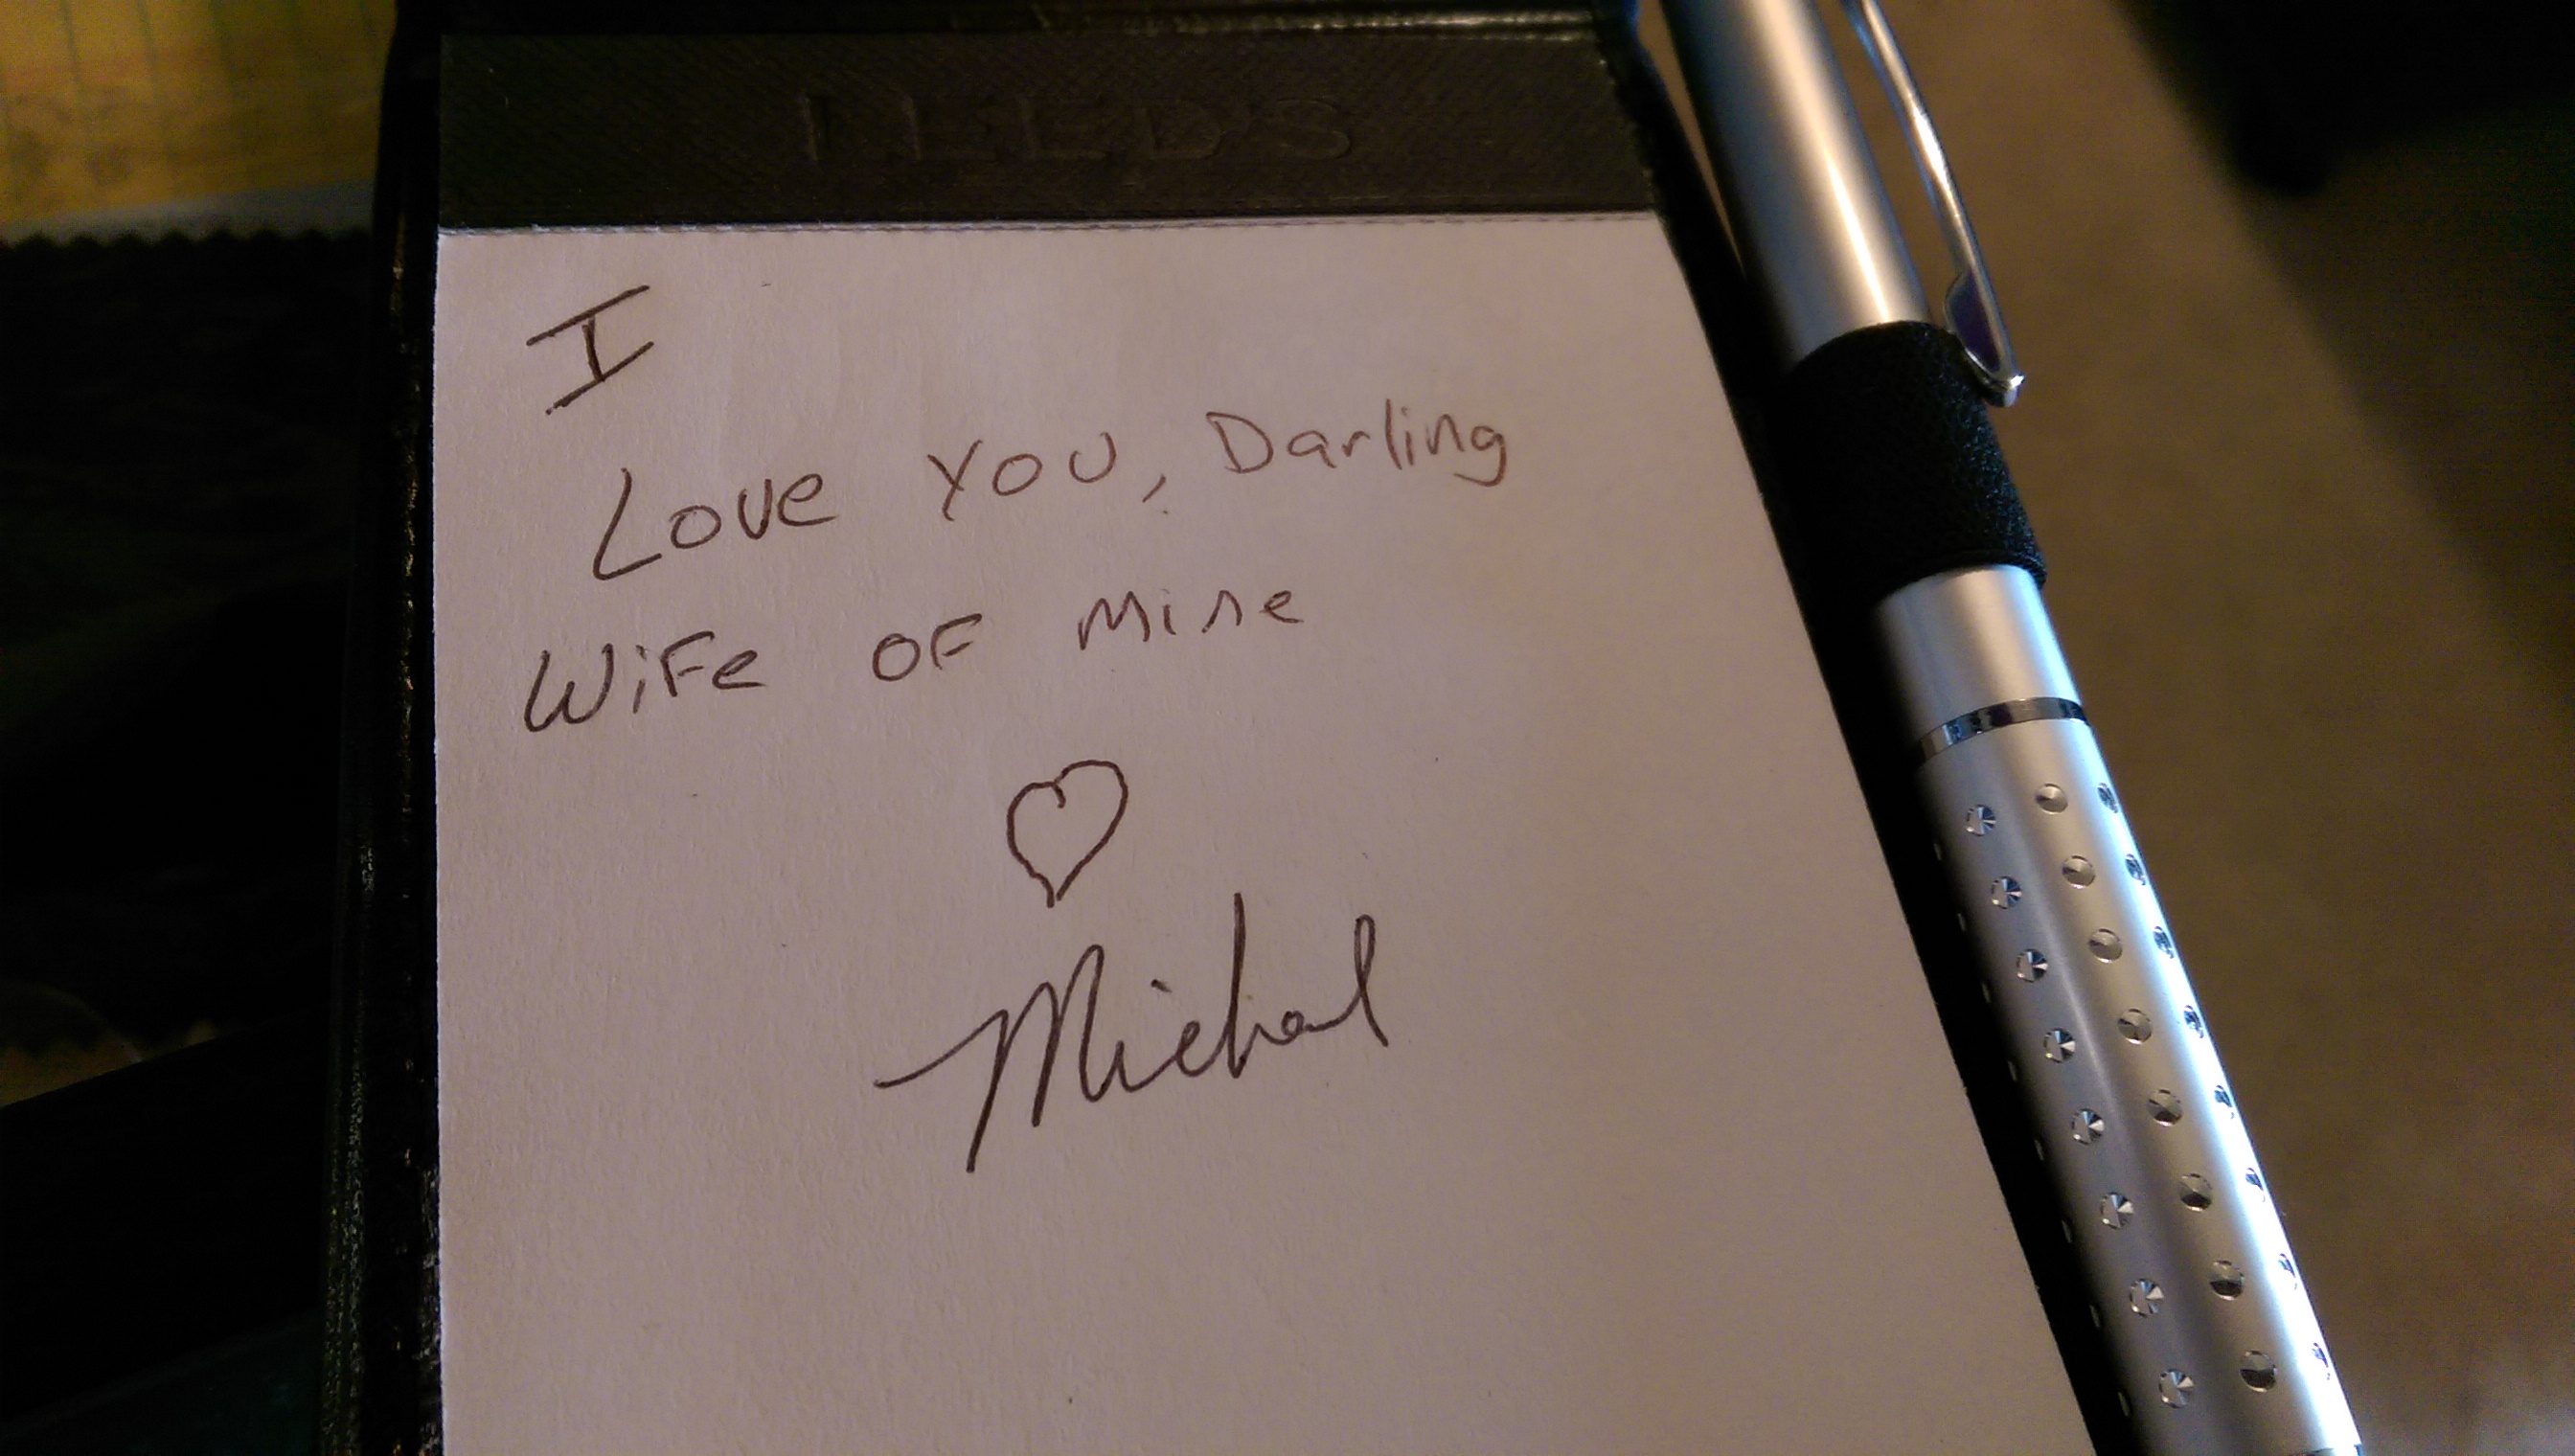 LEED'S
I
Love You, Darling
Wife of Mine
♡
Michael